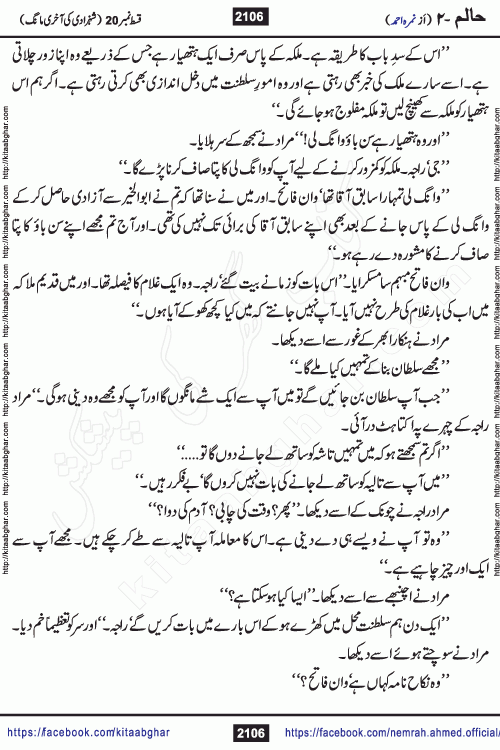 حالم ۔۲ (از نمرہ احمد)
2106
قسط نمبر 20 (شہزادی کی آخری مانگ)
’’اس کے سدِ باب کا طریقہ ہے۔ ملکہ کے پاس صرف ایک ہتھیار ہے جس کے ذریعے وہ اپنا زور چلاتی
ہے۔ اسے سارے ملک کی خبر بھی رہتی ہے اور وہ امورِ سلطنت میں دخل اندازی بھی کرتی رہتی ہے۔ اگر ہم اس
ہتھیار کو ملکہ سے کھینچ لیں تو ملکہ مفلوج ہو جائے گی۔‘‘
’’اور وہ ہتھیار ہے سن باؤ وانگ لی!‘‘ مراد نے سمجھ کے سر ہلایا۔
’’جی‘ راجہ۔ ملکہ کو کمزور کرنے کے لیے آپ کو وانگ لی کا پتا صاف کرنا پڑے گا۔‘‘
’’وانگ لی تمہارا سابق آقا تھا‘ وان فاتح۔ اور میں نے سنا تھا کہ تم نے ابوالخیر سے آزادی حاصل کر کے
وانگ لی کے پاس جانے کے بعد بھی اپنے سابق آقا کی برائی تک نہیں کی تھی۔ اور آج تم مجھے اپنے سن باؤ کا پتا
صاف کرنے کا مشورہ دے رہے ہو۔‘‘
وان فاتح مبہم سا مسکرایا۔ ’’اس بات کو زمانے بیت گئے‘ راجہ۔ وہ ایک غلام کا فیصلہ تھا۔ اور میں قدیم ملاکہ
میں اب کی بار غلام کی طرح نہیں آیا۔ آپ نہیں جانتے کہ میں کیا کچھ کھو کے آیا ہوں۔‘‘
مراد نے ہنکارا بھر کے غور سے اسے دیکھا۔
’’مجھے سلطان بنا کے تمہیں کیا ملے گا۔‘‘
’’جب آپ سلطان بن جائیں گے تو میں آپ سے ایک شے مانگوں گا اور آپ کو مجھے وہ دینی ہوگی۔‘‘ مراد
راجہ کے چہرے پہ اکتاہٹ در آئی۔
’’اگر تم سمجھتے ہو کہ میں تمہیں تاشہ کو ساتھ لے جانے دوں گا تو.....‘‘
’’میں آپ سے تالیہ کو ساتھ لے جانے کی بات نہیں کروں گا‘ بے فکر رہیں۔‘‘
مراد راجہ نے چونک کے اسے دیکھا۔ ’’پھر؟ وقت کی چابی؟ آدم کی دوا؟‘‘
’’وہ تو آپ نے ویسے ہی دے دینی ہے۔ اس کا معاملہ آپ تالیہ سے طے کر چکے ہیں۔ مجھے آپ سے
ایک اور چیز چاہیے ہے۔‘‘
مراد نے اچنبھے سے اسے دیکھا۔ ’’ایسا کیا ہوسکتا ہے؟‘‘
’’ایک دن ہم سلطنت محل میں کھڑے ہو کے اس بارے میں بات کریں گے‘ راجہ۔‘‘ اور سر کو تعظیماً خم دیا۔
مراد نے سوچتے ہوئے اسے دیکھا۔
’’وہ نکاح نامہ کہاں ہے‘ وان فاتح؟‘‘
https://facebook.com/kitaabghar
2106
https://facebook.com/nemrah.ahmed.official/